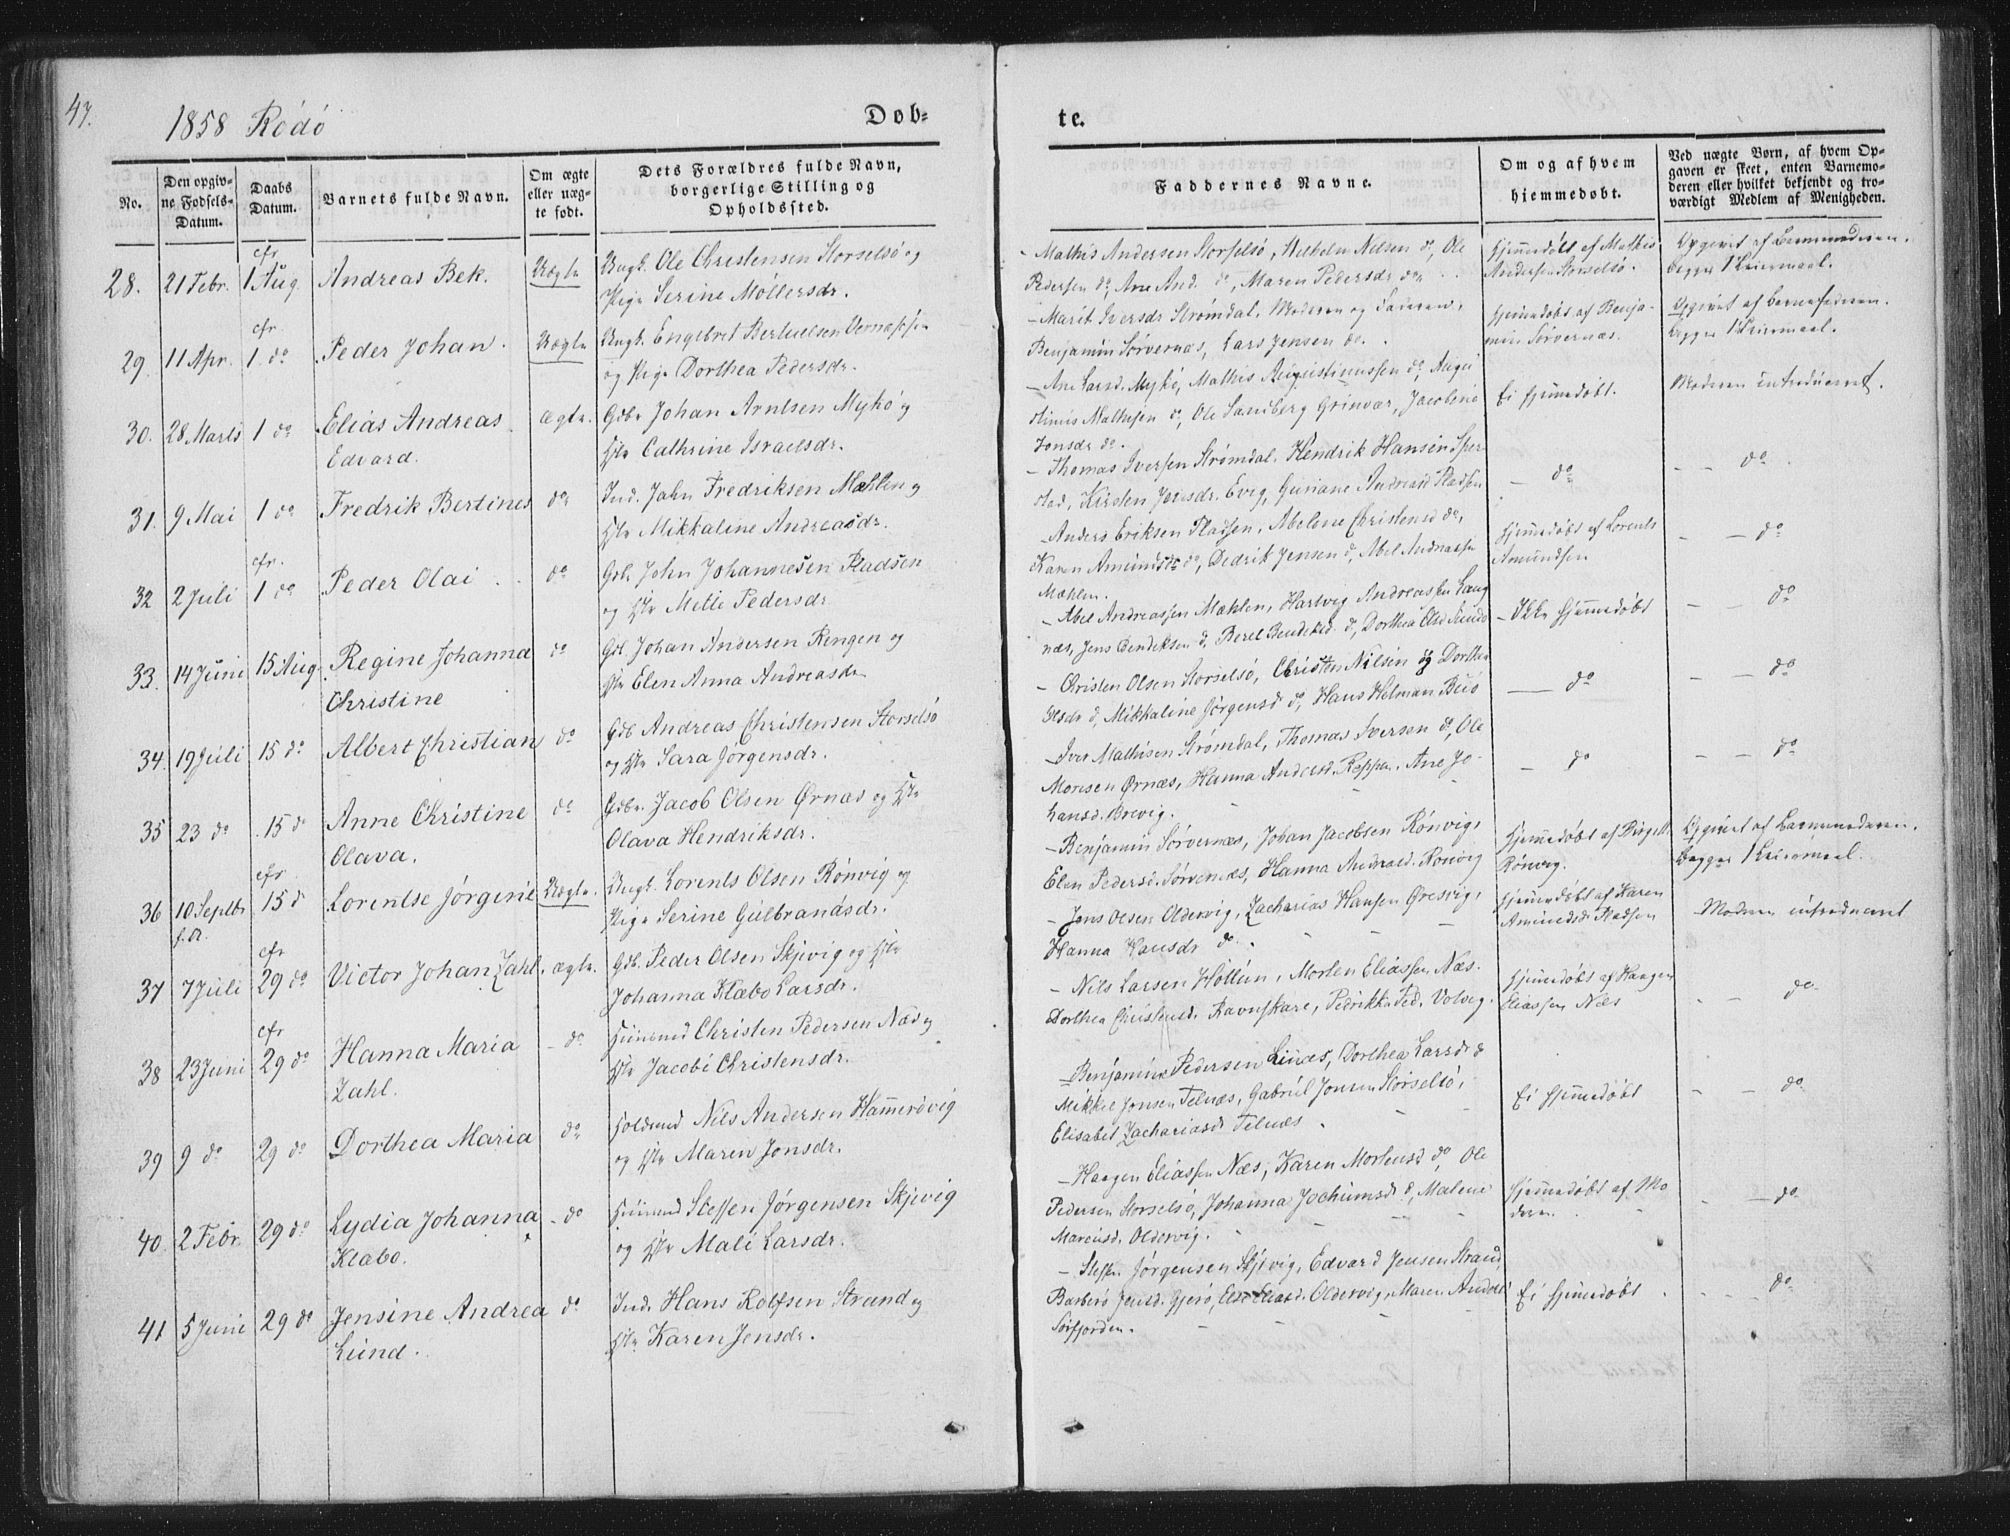 47.
1858 Rödö
Dob-
te.
No.
Den opgiv-
ne Fødsels-
Datum.
Daabs
Datum.
Barnets fulde Navn.
Om ægte
eller uæg-
te født.
Dets Forældres fulde Navn,
borgerlige Stilling og
Opholdssted.
Faddernes Navne.
Om og af hvem
hjemmedøbt.
Ved uægte Børn, af hvem Op-
gaven er skeet, enten Barnemo-
deren eller hvilket bekjendt og tro-
værdigt Medlem af Menigheden.
cfr
28. 21 Febr. 1 Aug Andreas Bek. Uægte Ungk. Ole Christensen Storselsö og
Pige Serine Möllersdr.
- Mathis Andersen Storselsö, Wilhelm Nilsen do, Ole
Pedersen do, Ane And. do, Maren Pedersdr do
Hjemmedöbt af Mathis
Andersen Storselsö.
Opgivet af Barnemoderen.
begges 1 Leiermaal.
cfr.
29. 11 Apr. 1. do Peder Johan. Uægte Ungk. Engebret Bertuelsen
og Pige Dorthea Pedersdr.
- Marit Iversdr Strømdal, Moderen og Faderen,
Benjamin Sörvernæs, Lars Jensen do.
Hjemmedöbt af Benja-
min Sörvernæs.
Opgivet af
begges 1 Leiermaal.
30. 28 Marts 1 do Elias Andreas
Edvard.
ægte. Gdbr Johan Arntsen Mykö og
Htr Cathrine Israelsdr.
- Ane Larsd. Mykö, Mathis Augustinussen do, Augu
stinus Mathisen do, Ole Sandberg Grinvær, Jacobine
Jonsdr do.
Ei hjemmedöbt.
Moderen introduceret.
31. 9 Mai 1 do Fredrik Bertines do Ind. John Fredriksen Mæhlen og
Htr Mikkaline Andreasdr.
- Thomas Iversen Strømdal, Hendrik Hansen Sper
stad, Kirsten Jensdr. Evig, Guriane Andreasd Pladsen
- do
- - do
cfr.
32 2 Juli 1 do Peder Olai. do Gdb. John Johannesen Pladsen
og Htr Mette Pedersdr
- Anders Eriksen Pladsen, Abelone Christensd do,
Karen Amundsdr do, Dedrik Jensen do, Abel Andreassen
Mæhlen.
Hjemmedöbt af Lorents
Amundsen
- - do
33. 14 Juni 15 Aug. Regine Johanna
Christine
do Gdb. Johan Andersen Rengen og
Htr Elen Anna Andreasdr
- Abel Andreassen Mæhlen, Hartvig Andreassen Lang
næs, Jens Bendiksen do, Beret Bendiksd. do, Dorthea Olsd Sund
- Ikke hjemmedöbt
- - do
34. 19 Juli 15 do Albert Christian do Gdb Andreas Christensen Storselsö
og Htr Sara Jörgensdr.
- Christen Olsen Storselsö, Christen Nilsen og Dorthea
Olsdr do, Mikkaline Jörgensd do, Hans Hetman
- do
- - do
35 23 do 15 do Anne Christine
Olava.
do Gdbr. Jacob Olsen Ørnæs og Htr
Olava Hendriksdr.
- Iver Mathisen Strømdal, Thomas Iverson do, Ole
Monsen Ørnæs, Hanna Andersd. Reppen, Ane Jo-
hansd. Brevig.
- do
- - do
cfr.
36 10. Septbr 15 do Lorentse Jörgine Uægte. Ungk. Lorents Olsen Rönvig og
f. A. Pige Serine Gulbrandsdr.
- Benjamin Sörvernæs, Johan Jacobsen Rönvig,
Elen Pedersd. Sörvernæs, Hanna Andreasd. Rönvig
Hjemmedöbt af Birgitt
Rönvig.
Opgivet af Barnemoderen.
begges 1 Leiermaal.
cfr
37 7 Juli 29 do Victor Johan Zahl. ægte. Gdb. Peder Olsen Skjevig og Htr
Johanna Klæbo Larsdr.
- Jens Olsen Oldervig, Zacharias Hansen Øresvig,
Hanna Hansdr do.
Hjemmedöbt af Karen
Amundsdr Pladsen
Moderen introduceret
cfr
38 23 Juni 29 do Hanna Maria
Zahl.
- do Huusmd Christen Pedersen Næs og
Htr Jacobi Christensdr.
- Nils Larsen Holtun, Morten Eliassen Næs.
Dorthea Christensd. Ravnskare, Pedrikke Ped. Volvig.
Hjemmedöbt af Haagen
Eliassen Næs
- - do
39 9 do 29 do Dorthea Maria do Nils Andersen Hammervig
og Htr Maren Jonsdr.
- Benjamin Pedersen Lines, Dorthea Larsdr do
Mikkel Jonsen Telnæs, Gabriel Jonsen Storselsö,
Elisabet Zachariasdr Telnæs.
Ei hjemmedöbt
- - do
40 2 Febr. 29 do Lydia Johanna
Klæbo.
- do Huusmd Steffen Jörgensen Skjevig
og Htr Mali Larsdr.
- Haagen Eliassen Næs, Karen Mortensd do, Ole
Pedersen Storselsö, Johanna Jochumsd do, Malene
Marcusd. Oldervig.
Hjemmedöbt af Mo
deren.
- - do
41 5 Juni 29 do Jensine Andrea
Lund.
do Ind. Hans Rolfsen Strand og
Htr Karen Jensdr.
- Steffen Jörgensen Skjevig, Edvard Jensen Strand
Barbero Jensd. Gjerö, Else Eliasd. Oldervig, Maren Andersd
Sörfjorden.
Ei hjemmedöbt
- do